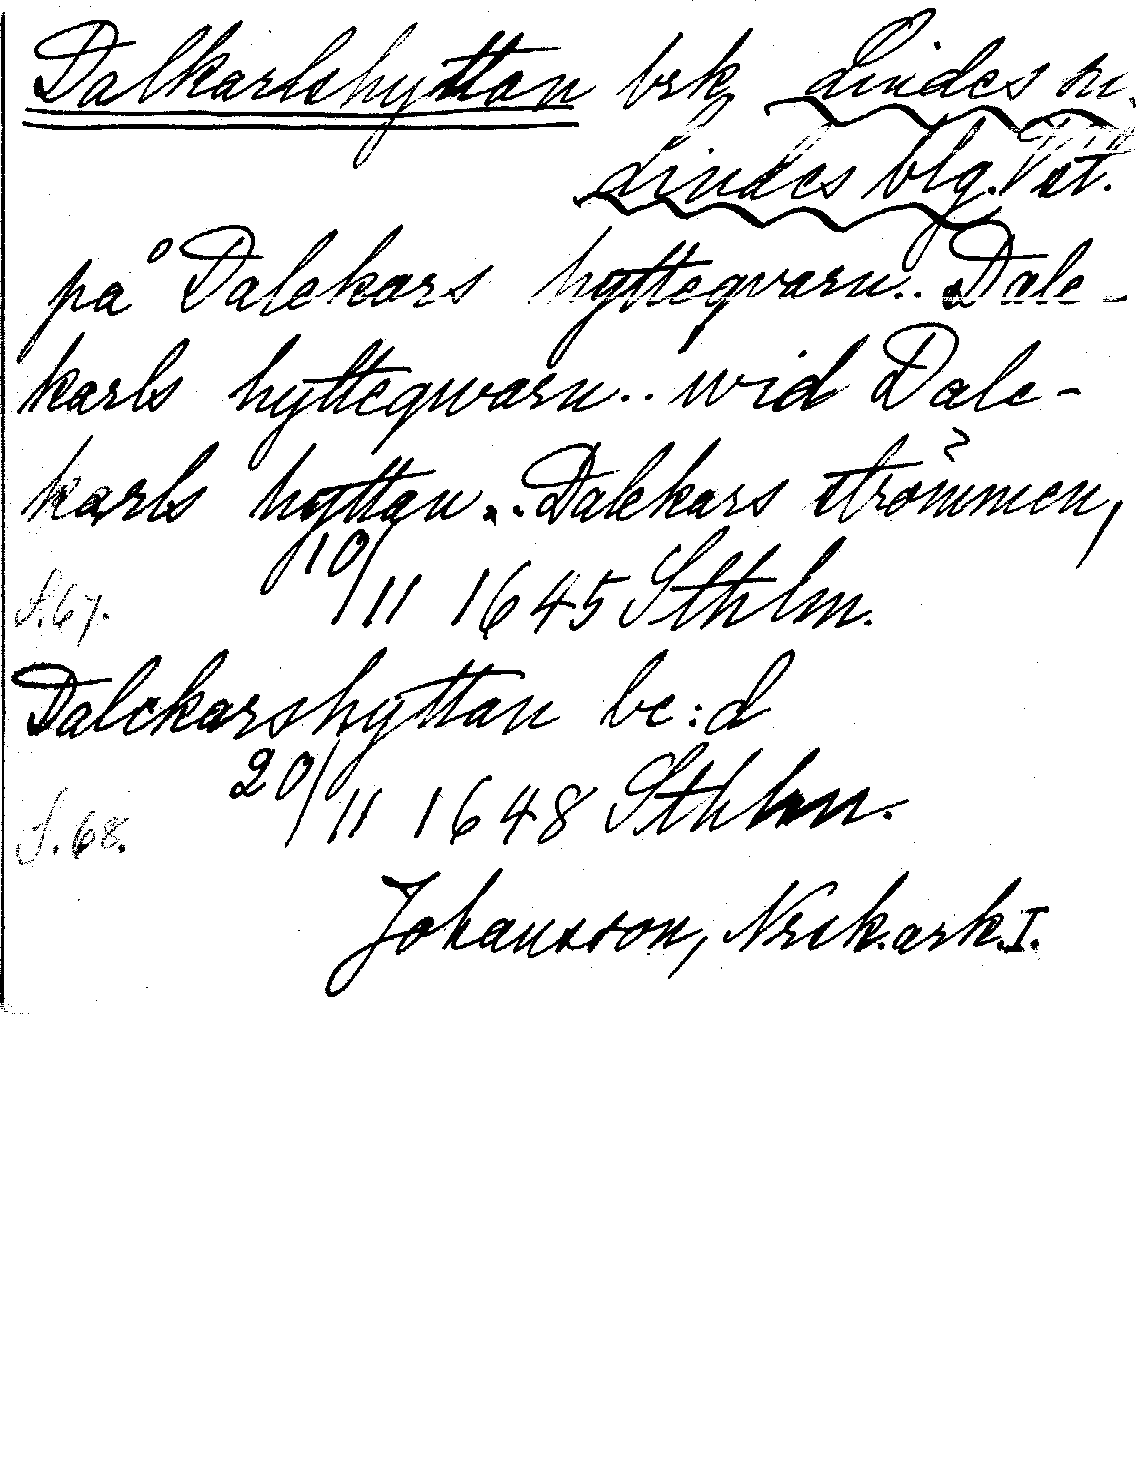 Dalkarlshyttan brk Lindes sn.
Lindes blg. Vstm.
på Dalekars hyttegvarn.. Dale-
karls hyttegwarn.. wid Dale-
karls hyttan... Dalekars strömmen,
S.67. 10/11 1645 Sthlm.
Dalekarshyttan be:d
S.68. 20/11 1648 Sthlm.
Johansson, Nrk.ark.I.